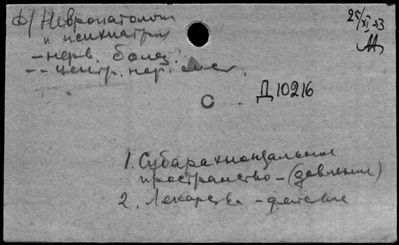 Ф) Невропатология
и психиатрия
- нерв. болез.
-- центр. нер. сист.
25/XI 23
С
Д10216
1. Субарахноидальное
пространство - (давление)
2. Лекарства - действие